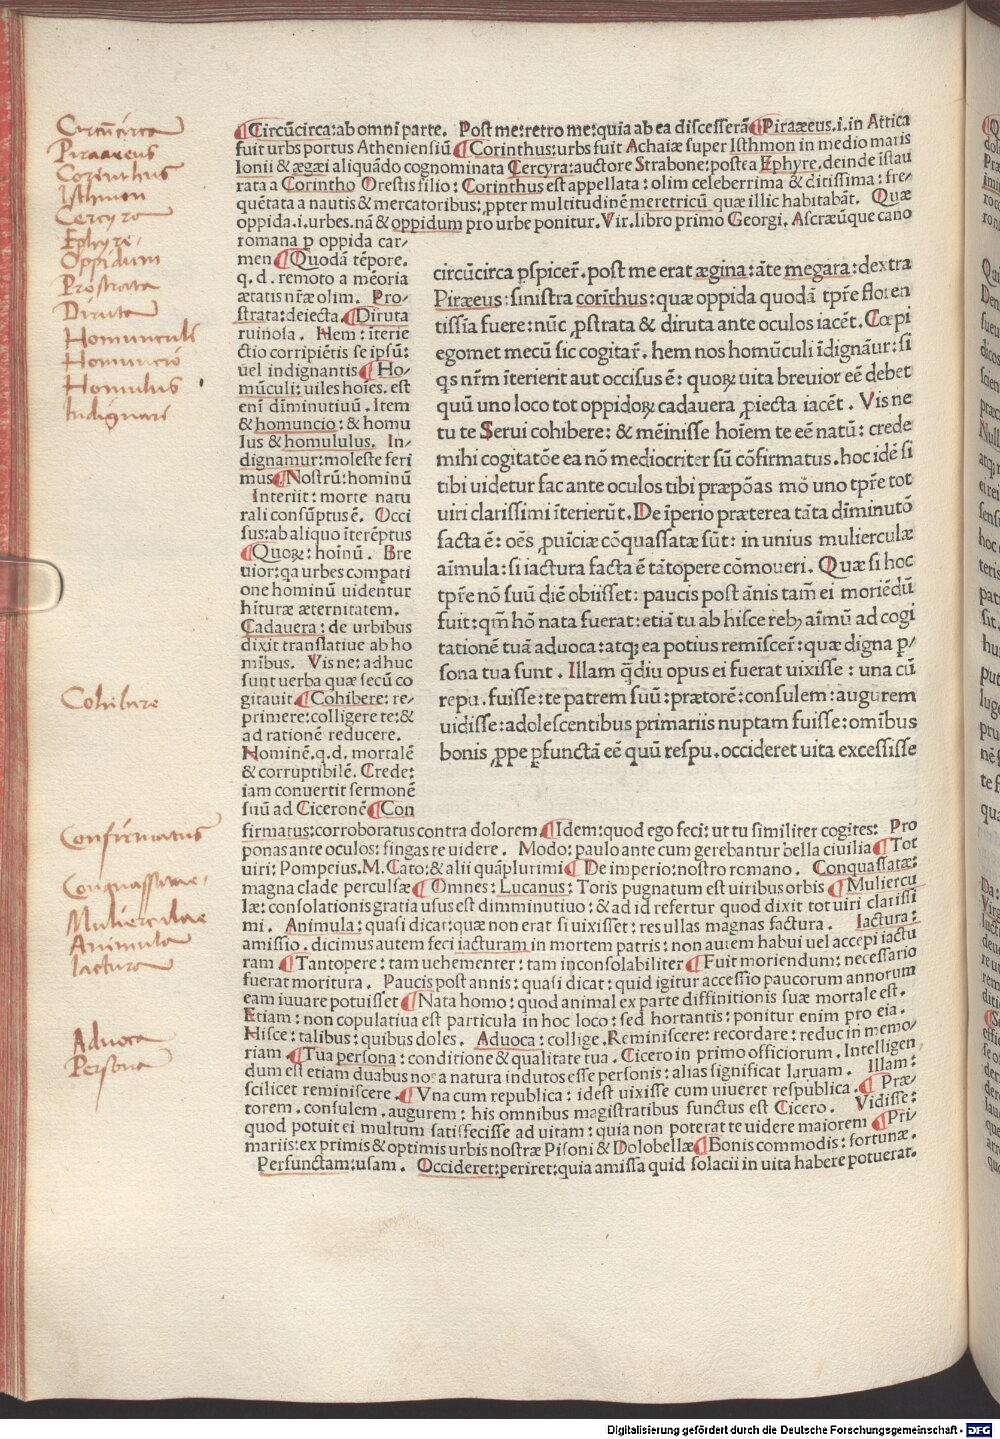 Circũcirca
Piraaeus
Corinthus
Isthmon
Cercyra
Ephyre
Oppidum
Prostrata
Diruta
Homunculi
Homuncio
Homulus
Indignari
Cohibere
Confirmatus
Conquassatae
Mulierculae
Animula
Iactura
Aduoca
Persona
¶Circũcirca:ab omni parte. Post me:retro me:quia ab ea discesserã¶Piraæeus.i.in Attica
fuit urbs portus Atheniensiũ¶Corinthus:urbs fuit Achaiæ super Isthmon in medio maris
Ionii & ægæi aliquãdo cognominata Cercyra:auctore Strabone:postea Ephyre.deinde istau
rata a Corintho Orestis filio: Corinthus est appellata: olim celeberrima & ditissima: fre/
quẽtata a nautis & mercatoribus: ꝓpter multitudinẽ meretricũ quæ illic habitabãt. Quæ
oppida.i.urbes.nã & oppidum pro urbe ponitur. Vir.libro primo Georgi. Ascræũque cano
romana p oppida car/
men¶Quodã tẽpore.
q.d.remoto a mẽoria
ætatis nr̃æ olim. Pro/
strata:deiecta.¶Diruta
ruinosa. Hem: ĩterie
ctio corripiẽtis se ipsũ:
uel indignantis¶Ho/
mũculi:uiles hoĩes.est
enĩ dĩminutiuũ. Item
& homuncio:& homu
lus & homululus. In/
dignamur:moleste feri
mus¶Nostrũ:hominũ
Interiit: morte natu
rali consũptus ẽ. Occi
sus:ab aliquo ĩterẽptus
¶Quoꝝ: hoĩnũ. Bre
uior:qa urbes compati
one hominũ uidentur
hr̃turæ æternitatem.
Cadauera: de urbibus
dixit translatiue ab ho
mĩbus. Vis ne: adhuc
sunt uerba quæ secũ co
gitauit.¶Cohibere: re/
primere:colligere te:&
ad rationẽ reducere.
Hominẽ.q.d. mortalẽ
& corruptibilẽ. Crede:
iam conuertit sermonẽ
suũ ad Ciceronẽ¶Con
circũcirca pspicer̃.post me erat ægina:ãte megara:dextra
Piræeus:sinistra corĩthus:quæ oppida quodã tpr̃e floren
tissĩa fuere:nũc ꝓstrata & diruta ante oculos iacẽt.Cœpi
egomet mecũ sic cogitar̃. hem nos homũculi ĩdignãur:si
qs nr̃m ĩterierit aut occisus ẽ: quoꝝ uita breuior eẽ debet
quũ uno loco tot oppidoꝝ cadauera ꝓiecta iacẽt. Vis ne
tu te Serui cohibere: & mẽinisse hoĩem te eẽ natũ: crede
mihi cogitatõe ea nõ mediocriter sũ cõfirmatus.hoc idẽ si
tibi uidetur fac ante oculos tibi præpõas mõ uno tpr̃e tot
uiri clarissimi ĩterierũt.De ĩperio præterea tãta dĩminutõ
facta ẽ: oẽs ꝓuĩciæ cõquassatæ sũt: in unius mulierculæ
aĩmula: si iactura facta ẽ tãtopere cõmoueri. Quæ si hoc
tpr̃e nõ suũ diẽ obiisset: paucis post ãnis tam̃ ei moriẽdũ
fuit:qm̃ hõ nata fuerat:etiã tu ab hisce rebꝫ aĩmũ ad cogi
tationẽ tuã aduoca:atqꝫ ea potius remĩscer̃:quæ digna p/
sona tua sunt. Illam q̃diu opus ei fuerat uixisse: una cũ
repu.fuisse:te patrem suũ:prætorẽ:consulem:augurem
uidisse:adolescentibus primariis nuptam fuisse:omĩbus
bonis ꝓpe pfunctã eẽ quũ respu.occideret uita excessisse
firmatus:corroboratus contra dolorem.¶Idem:quod ego feci:ut tu similiter cogites: Pro
ponas ante oculos: fingas te uidere. Modo:paulo ante cum gerebantur bella ciuilia¶Tot
uiri: Pompeius.M.Cato:& alii quãplurimi¶De imperio:nostro romano. Conquassatæ:
magna clade perculsæ¶Omnes: Lucanus: Totis pugnatum est uiribus orbis¶Muliercu
læ:consolationis gratia usus est dimminutiuo:& ad id refertur quod dixit tot uiri clarissi
mi. Animula: quasi dicat:quæ non erat si uixisset: res ullas magnas factura. Iactura:
amissio.dicimus autem feci iacturam in mortem patris: non autem habui uel accepi iactu
ram¶Tantopere: tam uehementer: tam inconsolabiliter¶Fuit moriendum: necessario
fuerat moritura. Paucis post annis: quasi dicat: quid igitur accessio paucorum annorum
eam iuuare potuisset¶Nata homo: quod animal ex parte diffinitionis suæ mortale est.
Etiam: non copulatiua est particula in hoc loco: sed hortantis: ponitur enim pro eia.
Hisce: talibus: quibus doles. Aduoca: collige. Reminiscere: recordare: reduc in memo/
riam.¶Tua persona: conditione & qualitate tua. Cicero in primo officiorum. Intelligen
dum est etiam duabus nos a natura indutos esse personis: alias significat laruam. Illam:
scilicet reminiscere.¶Vna cum republica: idest uixisse cum uiueret respublica.¶Præ/
torem.consulem.augurem: his omnibus magistratibus functus est Cicero. Vidisse:
quod potuit ei multum satisfecisse ad uitam: quia non poterat te uidere maiorem¶Pri/
mariis:ex primis & optimis urbis nostræ Pisoni & Dolobellæ¶Bonis commodis: fortunæ.
Perfunctam:usam. Occideret:periret:quia amissa quid solacii in uita habere potuerat.
Digitalisierung gefördert durch die Deutsche Forschungsgemeinschaft - DFG